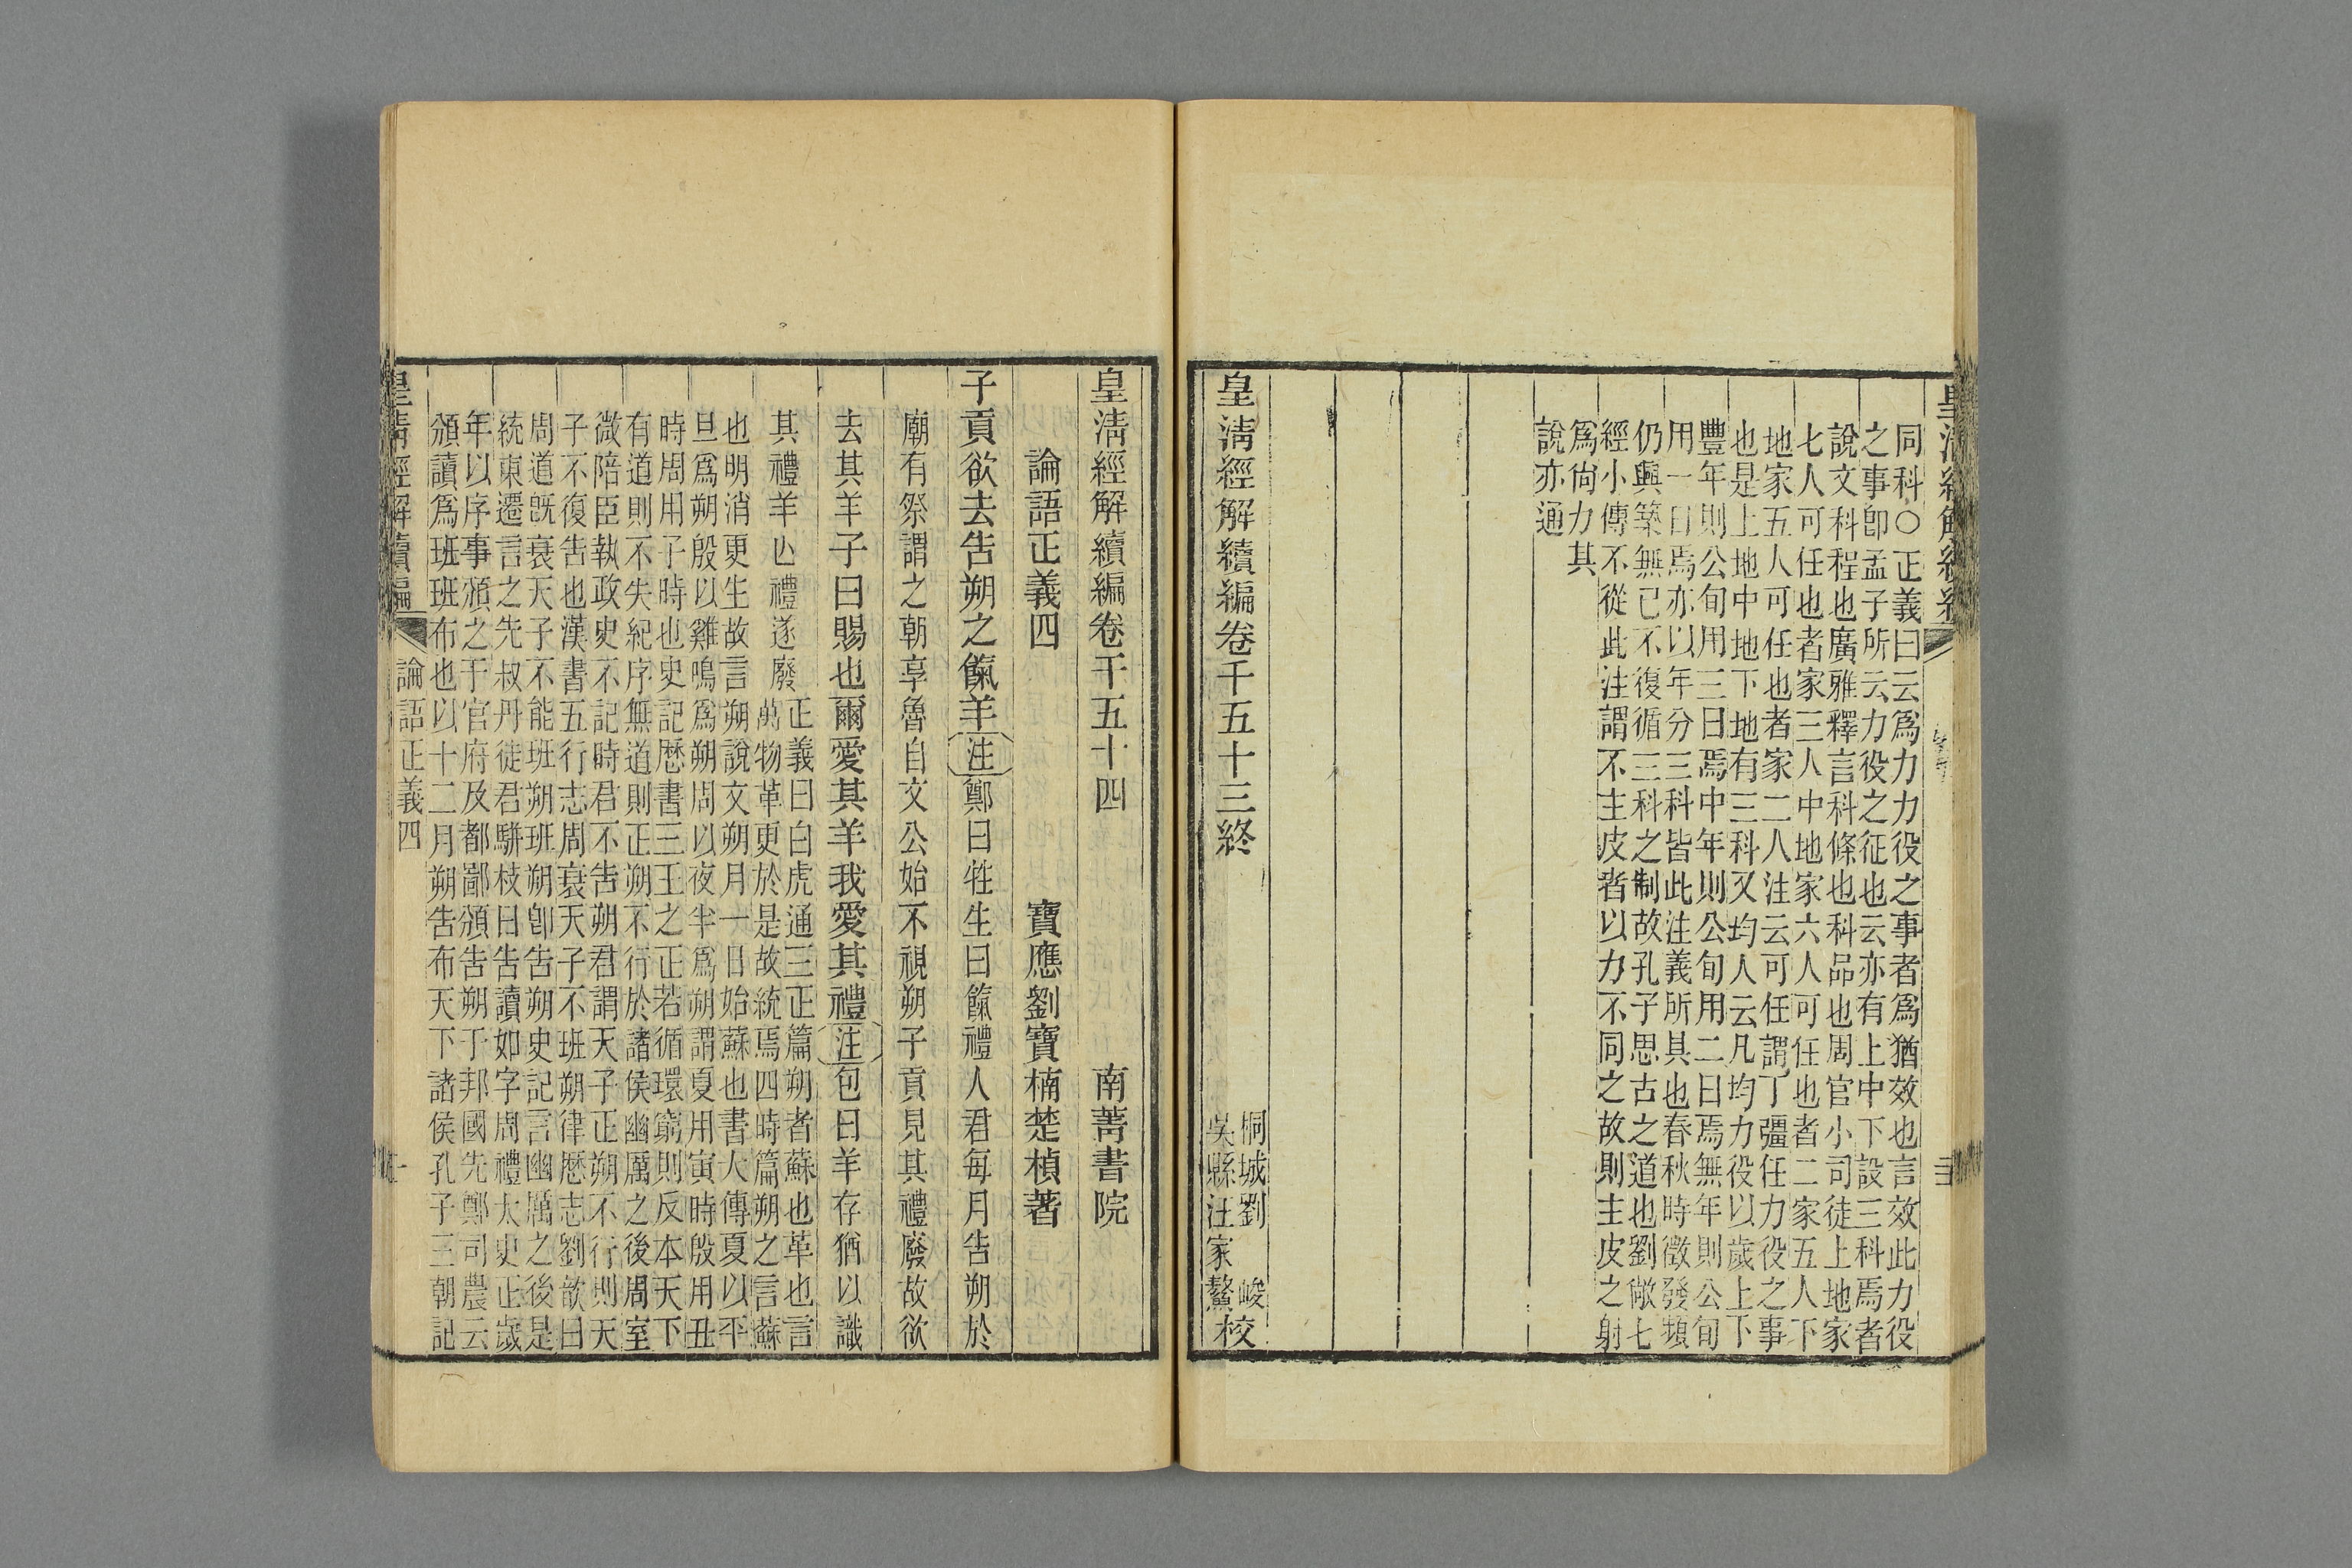 同科〇正義曰云爲力力役之事者爲猶效也言效此力役
之事卽孟子所云力役之征也云亦有上中下設三科焉者
說文科程也廣雅釋言科條也科品也周官小司徒上地家
七人可任也者家三人中地家六人可任也者二家五人下
地家五人可任也者家二人注云可任謂丁疆任力役之事
也是上地中地下地有三科又均人云凡均力役以歲上下
豐年則公旬用三日焉中年則公旬用二日焉無年則公旬
用一日焉亦以年分三科皆此注義所具也春秋時徵發頻
仍興築無已不復循三科之制故孔子思古之道也劉敞七
經小傳不從此注謂不主皮者以力不同之故則主皮之射
爲尚力其
說亦通
皇清經解續編卷千五十三終
桐城劉峻
吳縣汪家鰲校
皇清經解續編卷千五十四 南菁書院
論語正義四 寶應劉寶楠楚楨著
子貢欲去告朔之餼羊注鄭曰牲生曰餼禮人君每月告朔於
廟有祭謂之朝享魯自文公始不視朔子貢見其禮廢故欲
去其羊子曰賜也爾愛其羊我愛其禮注包曰羊存猶以識
其禮羊亾禮遂廢
正義曰白虎通三正篇朔者蘇也革也言
萬物革更於是故統焉四時篇朔之言蘇
也明消更生故言朔說文朔月一日始蘇也書大傳夏以平
旦爲朔殷以雞鳴爲朔周以夜半爲朔謂夏用寅時殷用丑
時周用子時也史記歷書三王之正若循環窮則反本天下
有道則不失紀序無道則正朔不行於諸侯幽厲之後周室
微陪臣執政史不記時君不告朔君謂天子正朔不行則天
子不復告也漢書五行志周衰天子不班朔律歷志劉歆曰
周道旣衰天子不能班朔班朔卽告朔史記言幽厲之後是
統東遷言之先叔丹徒君駢枝曰告讀如字周禮太史正歲
年以序事頒之于官府及都鄙頒告朔于邦國先鄭司農云
頒讀爲班班布也以十二月朔告布天下諸侯孔子三朝記
皇清經解續編 論語正義四